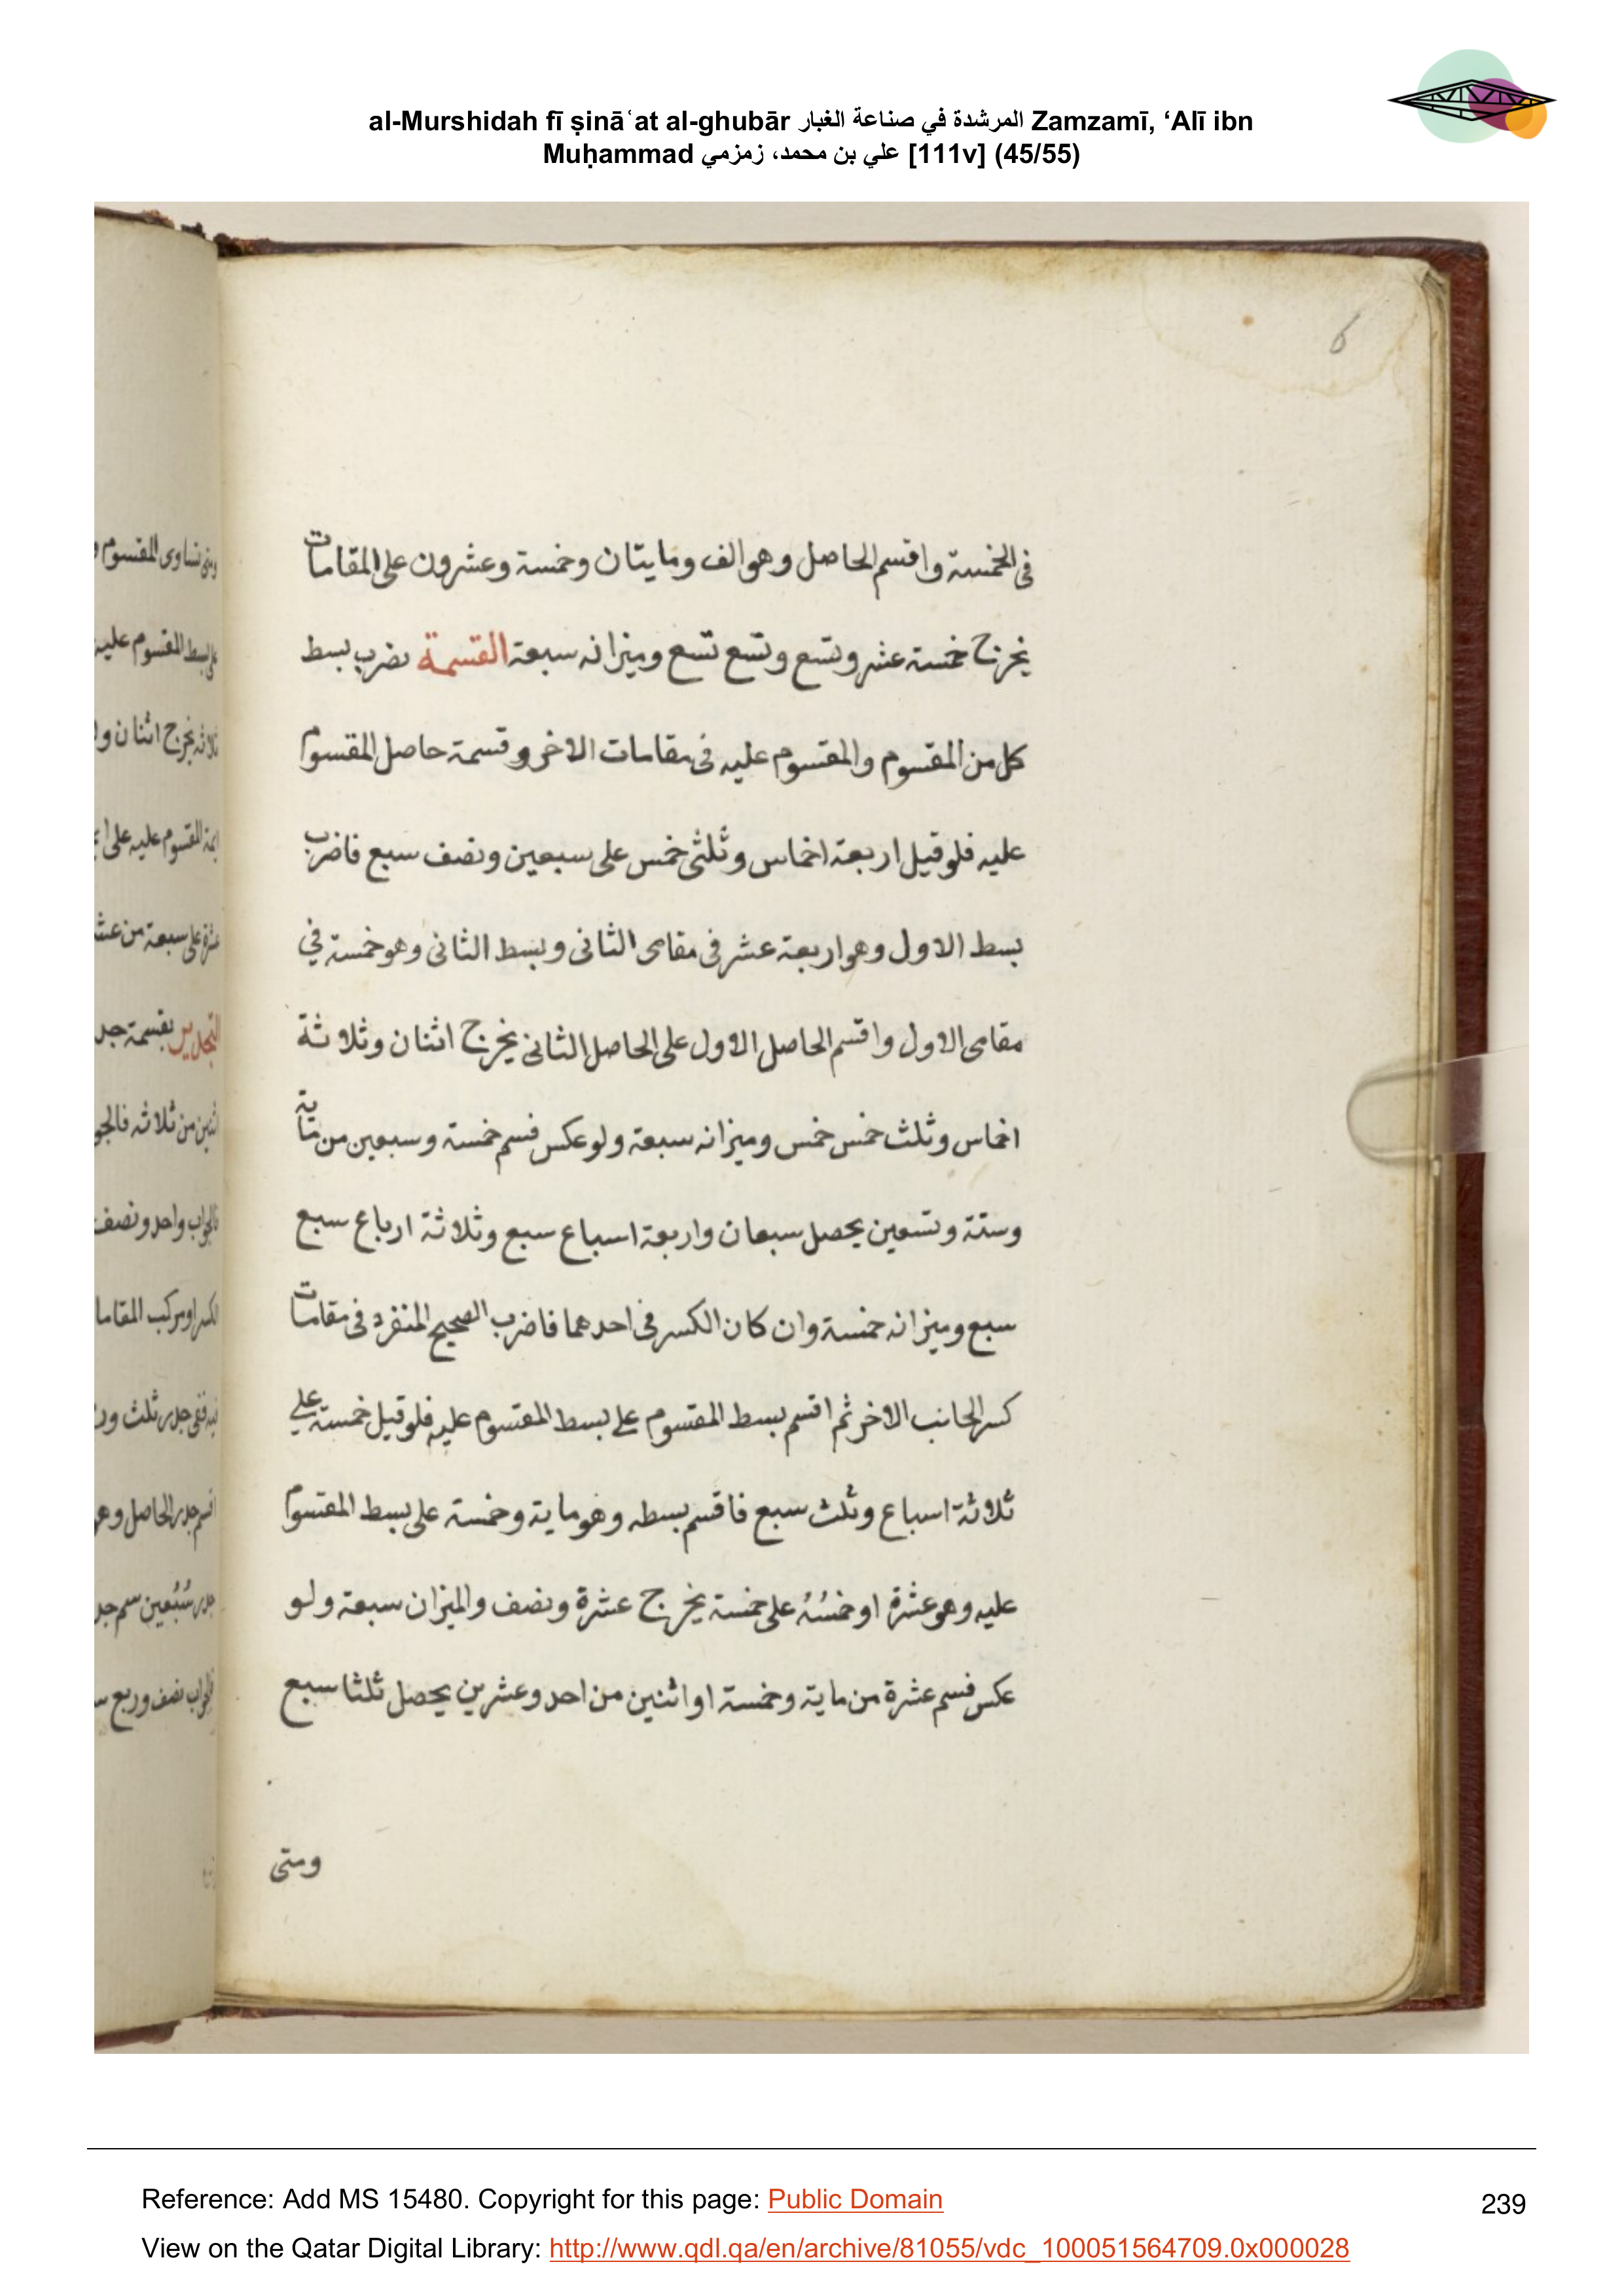 al-Murshidah fī ṣināʿat al-ghubār المرشدة في صناعة الغبار Zamzamī, ‘Alī ibn
Muḥammad علي بن محمد، زمزمي [111v] (45/55)
6
في الخمسة واقسم الحاصل وهو الف ومايتان وخمسة وعشرون على المقامات
يخرج خمسة عشر وتسع وتسع تسع وميزانه سبعة القسمة بضرب بسط
كل من المقسوم والمقسوم عليه في مقامات الاخر وقسمة حاصل المقسوم
عليه فلو قيل اربعة اخماس وثلثى خمس على سبعين ونصف سبع فاضرب
بسط الاول وهو اربعة عشر في مقامى الثانى وبسط الثانى وهو خمسة في
مقامى الاول واقسم الحاصل الاول على الحاصل الثانى يخرج اثنان وثلاثة
اخماس وثلث خمس خمس وميزانه سبعة ولو عكس فسم خمسة وسبعين من ماية
وستة وتسعين يحصل سبعان واربعة اسباع سبع وثلاثة ارباع سبع
سبع وميزانه خمسة وان كان الكسر في احدهما فاضرب الصحيح المنفرد في مقامات
كسر الجانب الاخر ثم اقسم بسط المقسوم على بسط المقسوم عليه فلو قيل خمسة على
ثلاثة اسباع وثلث سبع فاقسم بسطه وهو ماية وخمسة على بسط المقسوم
عليه وهو عشرة او خمسُهُ على خمسة يخرج عشرة ونصف والميزان سبعة ولو
عكس فسم عشرة من ماية وخمسة او اثنين من احد وعشرين يحصل ثلثا سبع
ومتى
ومتى تساوى المقسوم
على بسط المقسوم عليه
ثلاثة يخرج اثنان
المقسوم عليه على
عشرة على سبعة من
التجذير بقسمة جذ
اثنين من ثلاثة فالجو
فالجواب واحد ونصف
الكسر او مركب المقاما
ففى جذر ثلث
اقسم جذر الحاصل وهو
جذر سُبُعين سم جذ
فالجواب نصف وربع
Reference: Add MS 15480. Copyright for this page: Public Domain
239
View on the Qatar Digital Library: http://www.qdl.qa/en/archive/81055/vdc_100051564709.0x000028